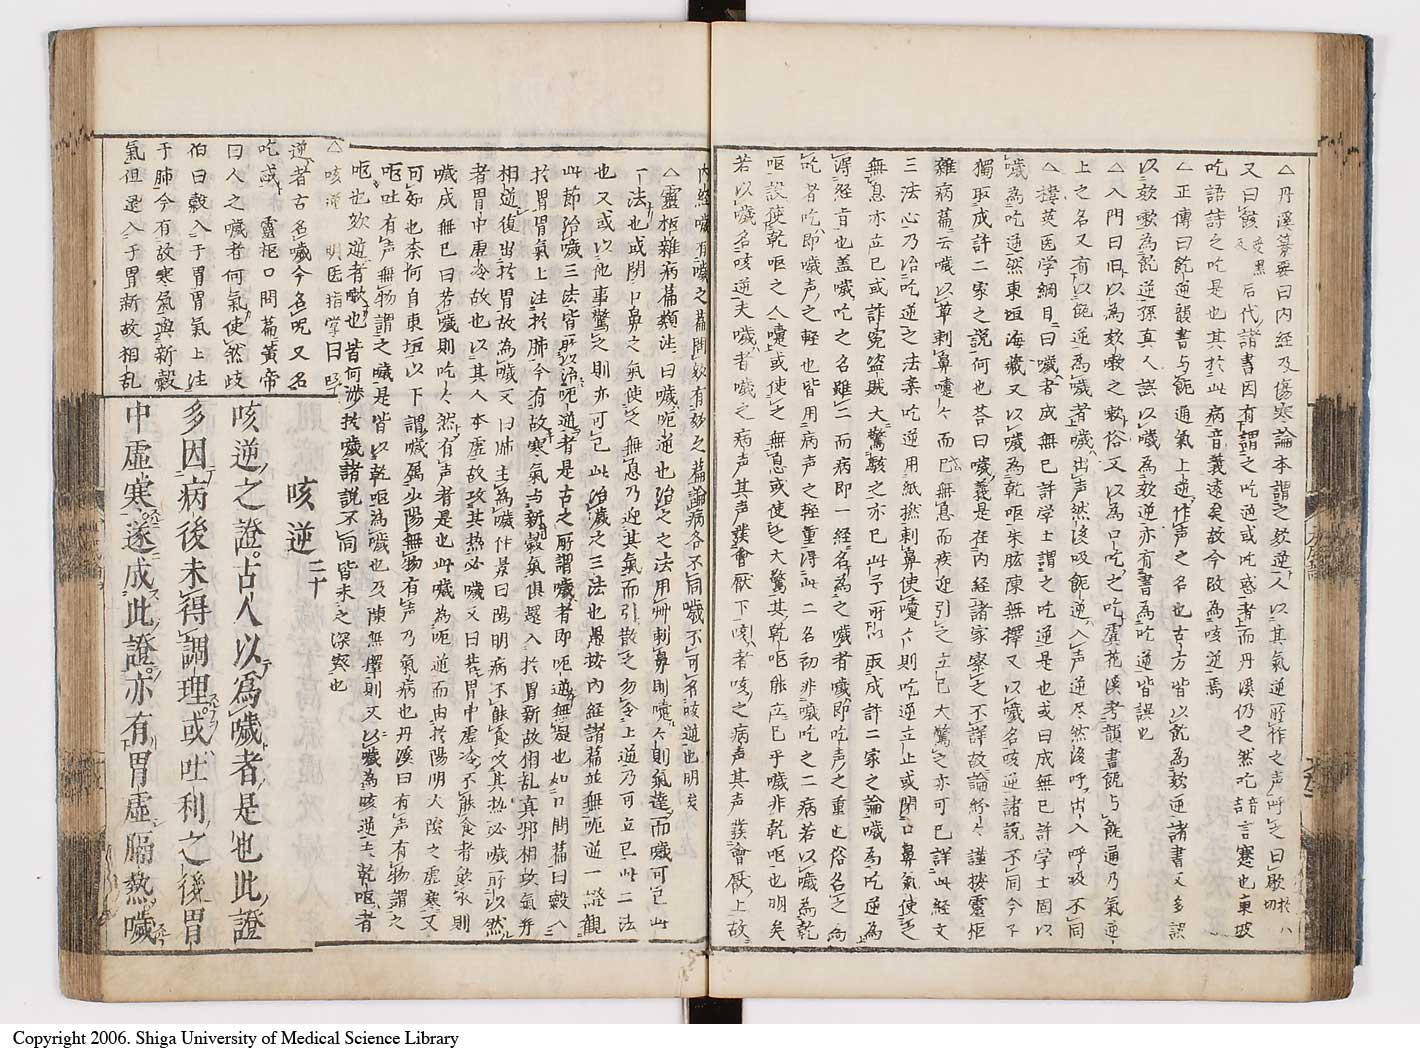 △丹溪纂要曰内経及傷寒論本謂之欬逆人以其氣逆所作之声呼之曰欬於八切
又曰欬 后代諸書因有謂之吃逆或吃惑者而丹溪仍之然吃語言蹇也東坡
吃語詩之吃是也其於此病音義遠矣故今改為咳逆焉
△正傳曰飥逆韻書与飩通氣上逆作声之名也古方皆以飥為欬逆諸書又多誤
以欬嗽為飥逆孫真人誤以噦為欬逆亦有書為吃逆皆誤也
△入門曰旧以為欬嗽之嗽俗又以為口吃之吃虞花溪考韻書飥与飩通乃氣逆
上之名又有以飥逆為噦者噦出声然後吸飥逆入声逆尽然後呼出入呼吸不同
△樓英医学綱目曰噦者成無已許学士謂之吃逆是也或曰成無已許学士固以
噦為吃逆然東垣海藏又以噦為乾呕朱肱陳無擇又以噦名咳逆諸説不同今子
獨取成許二家之説何也荅曰噦義是在内経諸家察之不詳故論紛々謹按靈枢
雜病篇云噦以草刺鼻嚏々而已無息而疾迎引之立已大驚之亦可已詳此経文
三法心乃治吃逆之法索吃逆用紙撚刺鼻使嚏々則吃逆立止或閉口鼻氣使之
無息亦立已或詐寃盗賊大驚駭之亦已此予所以取成許二家之論噦為吃逆為
得経旨也盖噦吃之名雖二而病即一経名為之噦者噦即吃声之重也俗名之為
吃者吃即噦声之軽也皆用病声之軽重得此二名初非噦吃之二病若以噦為乾
呕設使乾呕之人嚏或使之無息或使之大驚其乾呕能立已乎噦非乾呕也明矣
若以噦名咳逆夫噦者噦之病声其声發會厭下咳者咳之病声其声發會厭上故
内経噦有噦之篇門欬有欬之篇論病各不同噦不可名咳逆也明矣
△靈枢雜病篇類注曰噦呃逆也治之之法用草刺鼻則嚏々則氣達而噦可已此
一法也或閉口鼻之氣使之無息乃迎其氣而引散之勿令上逆乃可立已此二法
也又或以他事驚之則亦可已此治噦之三法也愚按内経諸篇並無呃逆一證觀
此節治噦三法皆所以治呃逆者是古之所謂噦者即呃逆無疑也如口問篇曰穀入
於胃胃氣上注於肺今有故寒氣与新穀氣俱還入於胃新故相乱真邪相攻氣并
相逆復出於胃故為噦又曰肺主為噦仲景曰陽明病不能食攻其熱必噦所以然
者胃中虚冷故也以其人本虚故攻其熱必噦又曰若胃中虚冷不能食者飲水則
噦成無已曰若噦則吃々然有声者是也此噦為呃逆而由於陽明大腸之虚寒又
可知也奈何自東垣以下謂噦属少陽無物有声乃氣病也丹溪曰有声有物謂之
呕吐有声無物謂之噦是皆以乾呕為噦也及陳無擇則又以噦為咳逆士乾呕者
呕也欬逆者嗽也昔何渉於噦諸説不同皆未之深察也
△咳逆 明医指学曰咳
逆者古名噦今名呃又名
吃或 靈枢口問篇黄帝
曰人之噦者何氣使然歧
伯曰穀入于胃胃氣上注
于肺今有故寒氣與新穀
氣但還入于胃新故相乱
咳逆二十
咳逆之證古人以為噦者是也此證
多因病後未得調理或吐利之後胃
中虚寒遂成此證亦有胃虚膈熱噦